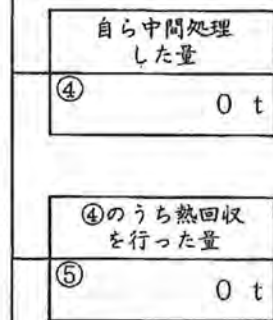 自ら中間処理
した量
④
0 t
④のうち熱回収
を行った量
⑤
0 t